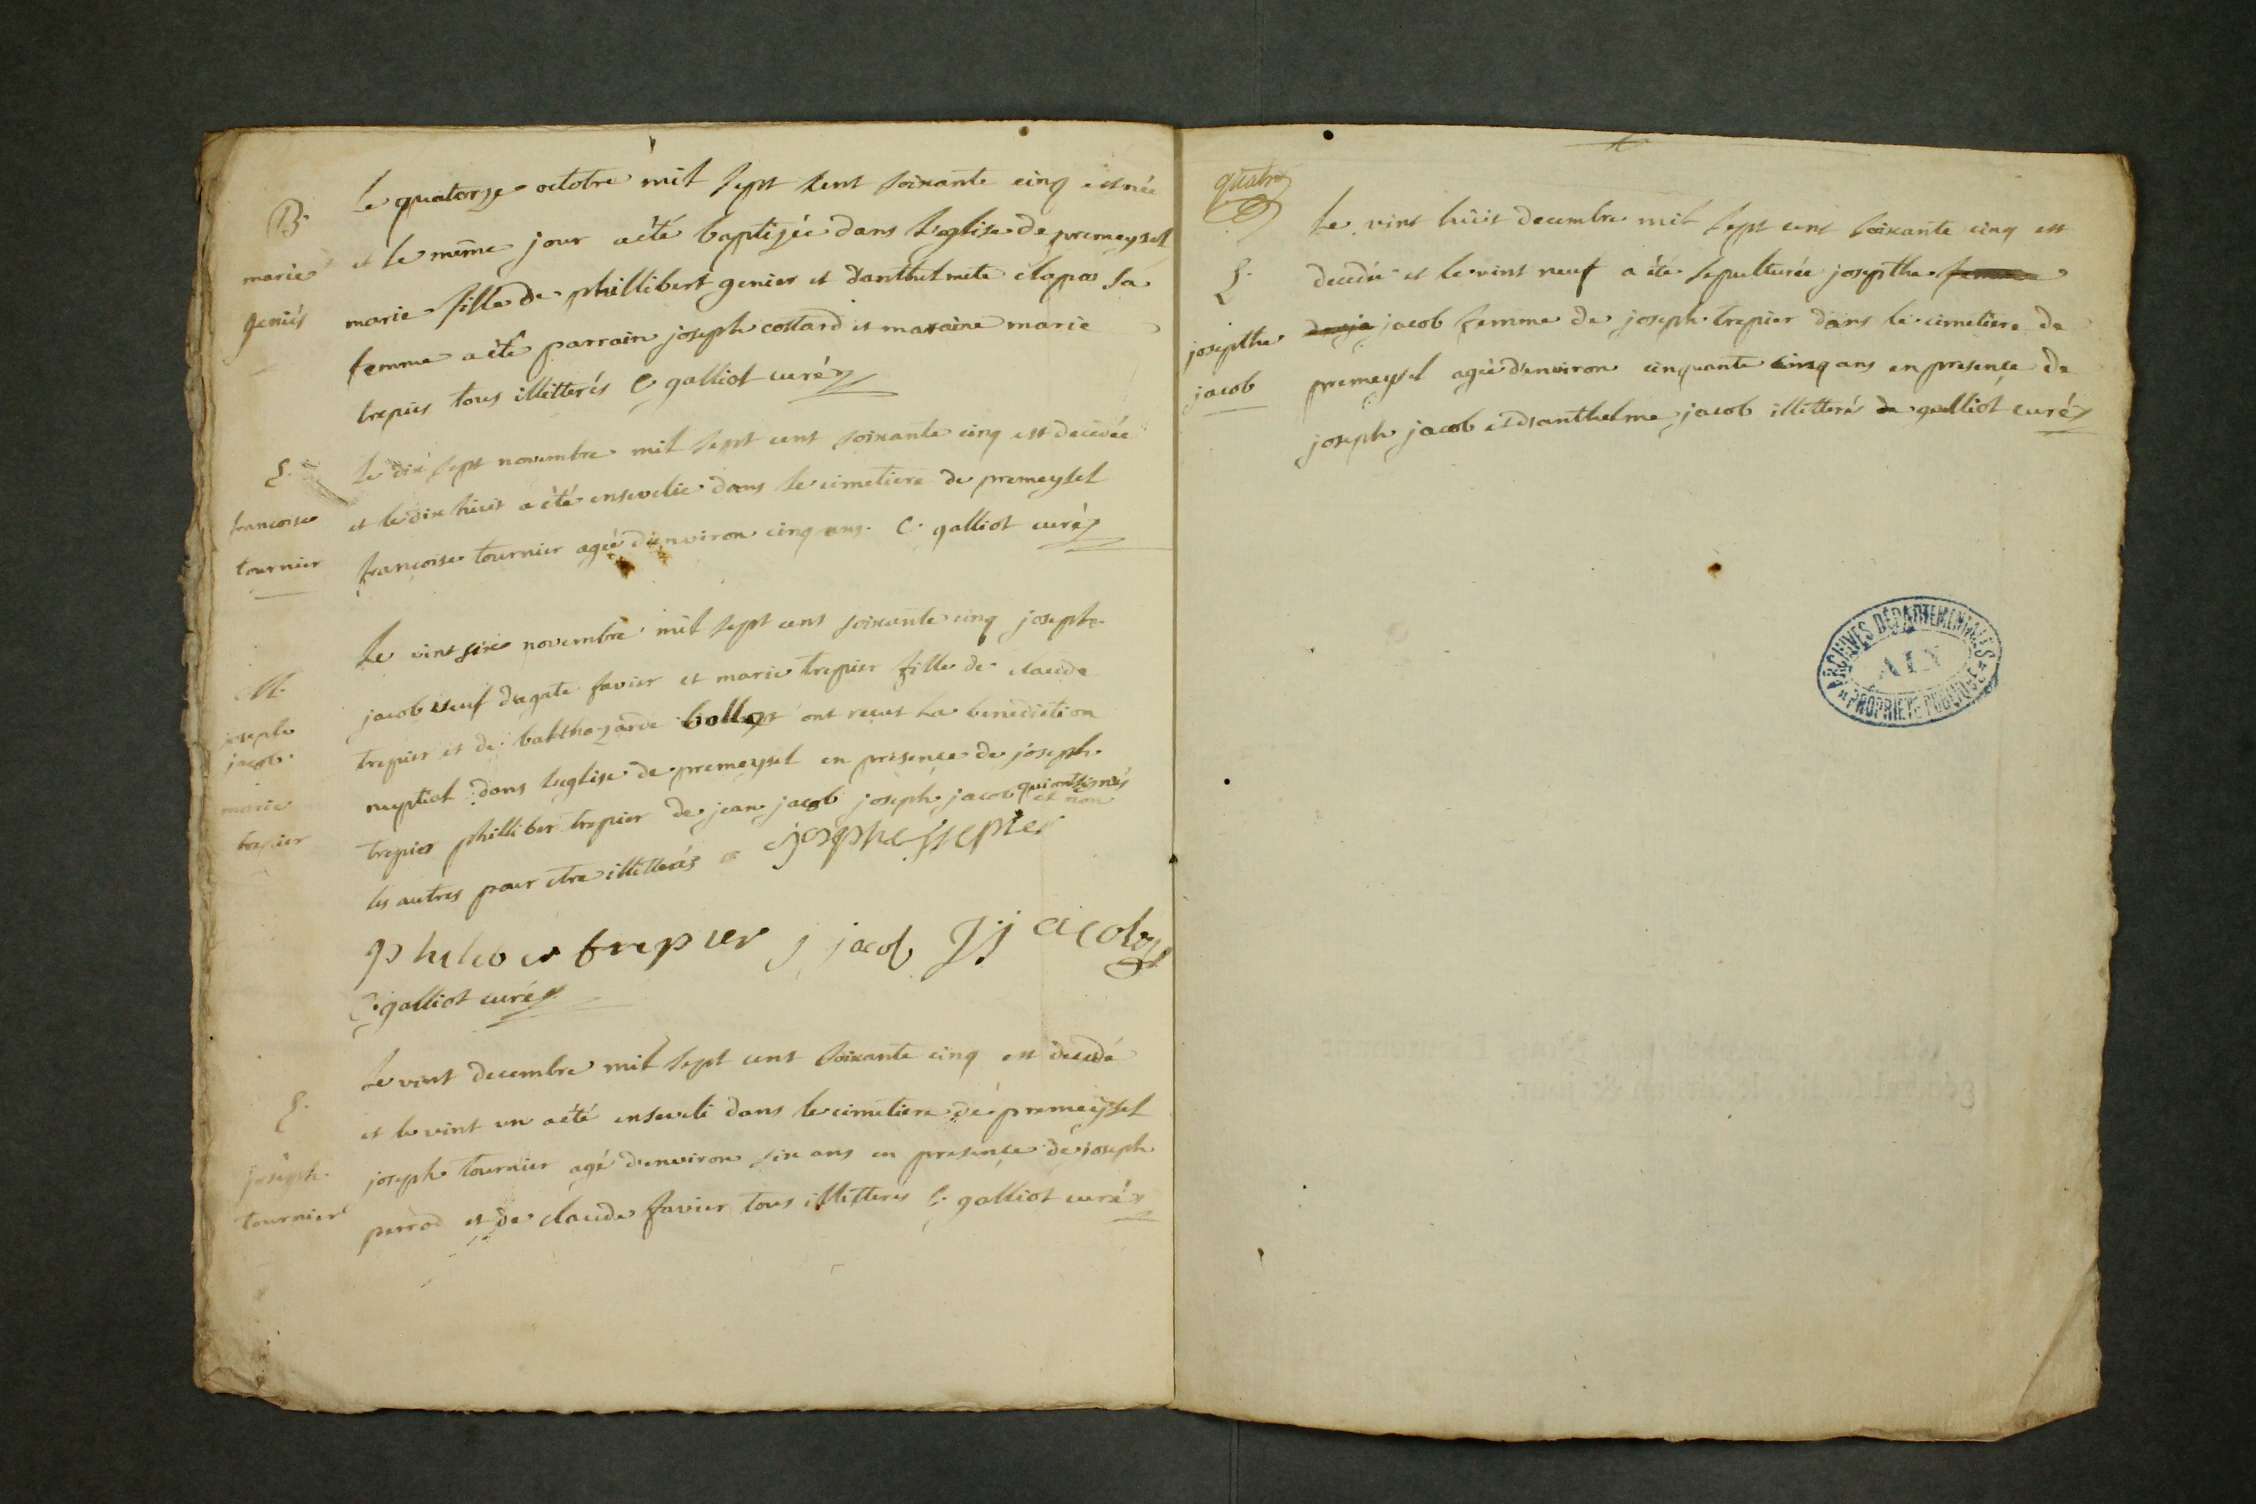 B.
marie
geniés
Le quatorze octobre mil sept cent soixante cinq est née
et le même jour a été baptizée dans l'eglise de premeysel
marie fille de phillibert genier et d'anthelmete clapos sa
femme a été parrain joseph costard et maraine marie
trepier tous illitterés C galliot curé
S.
francoise
tournier
Le dix sept novembre mil sept cent soixante cinq est decedée
et le dix huit a été ensevelie dans le cimetiere de premeysel
françoise tournier agée d'environ cinq ans. C. galliot curé
M.
joseph
jacob
marie
trepier
Le vint sixe novembre mil sept cent soixante cinq joseph
jacob veuf d'agate favier et marie trepier fille de claude
trepier et de balthazarde ont reçut La benediction
nuptial dans l'eglise de premeysel en présence de joseph
trepier philliber trepier de jean jacob joseph jacob qui ont signés
et non
les autres pour etre illitterés
joseph trepier
philiber trepier j jacob J j acob
C. galliot curé
S.
joseph
tournier
Le vint decembre mil sept cent soixante cinq est decedé
et le vint un a été enseveli dans le cimetiere de premeysel
joseph tournier agé d'environ six ans en presence de joseph
perrod et de claude favier tous illitterés C. galliot curé
quatre
S.
josepthe
jacob
Le vint huit decembre mil sept cent soixante cinq est
decedée et le vint neuf a été sepulturée josepthe femme
jacob femme de joseph trepier dans le cimetiere de
premeysel agée d'environ cinquante cinq ans en presence de
joseph jacob et d'anthelme jacob illitterés C galliot curé
ARCHIVES DÉPARTEMENTALES
AIN
PROPRIÉTÉ PUBLIQUE